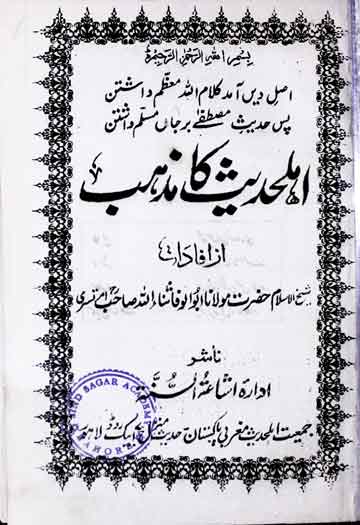 بسم اللہ الرحمٰن الرحیم
اصل دیں آمد کلام اللہ معظم داشتن
پس حدیث مصطفےٰ بر جاں مسلم داشتن
اہلحدیث کا مذہب
از افادات
شیخ الاسلام حضرت مولانا ابوالوفا ثناء اللہ صاحب امرتسری
ناشر
ادارہ اشاعۃ السنۃ
جمعیت اہلحدیث مغربی پاکستان حدیث منزل ایبک روڈ لاہور
SAGAR ACADEMY
LAHORE